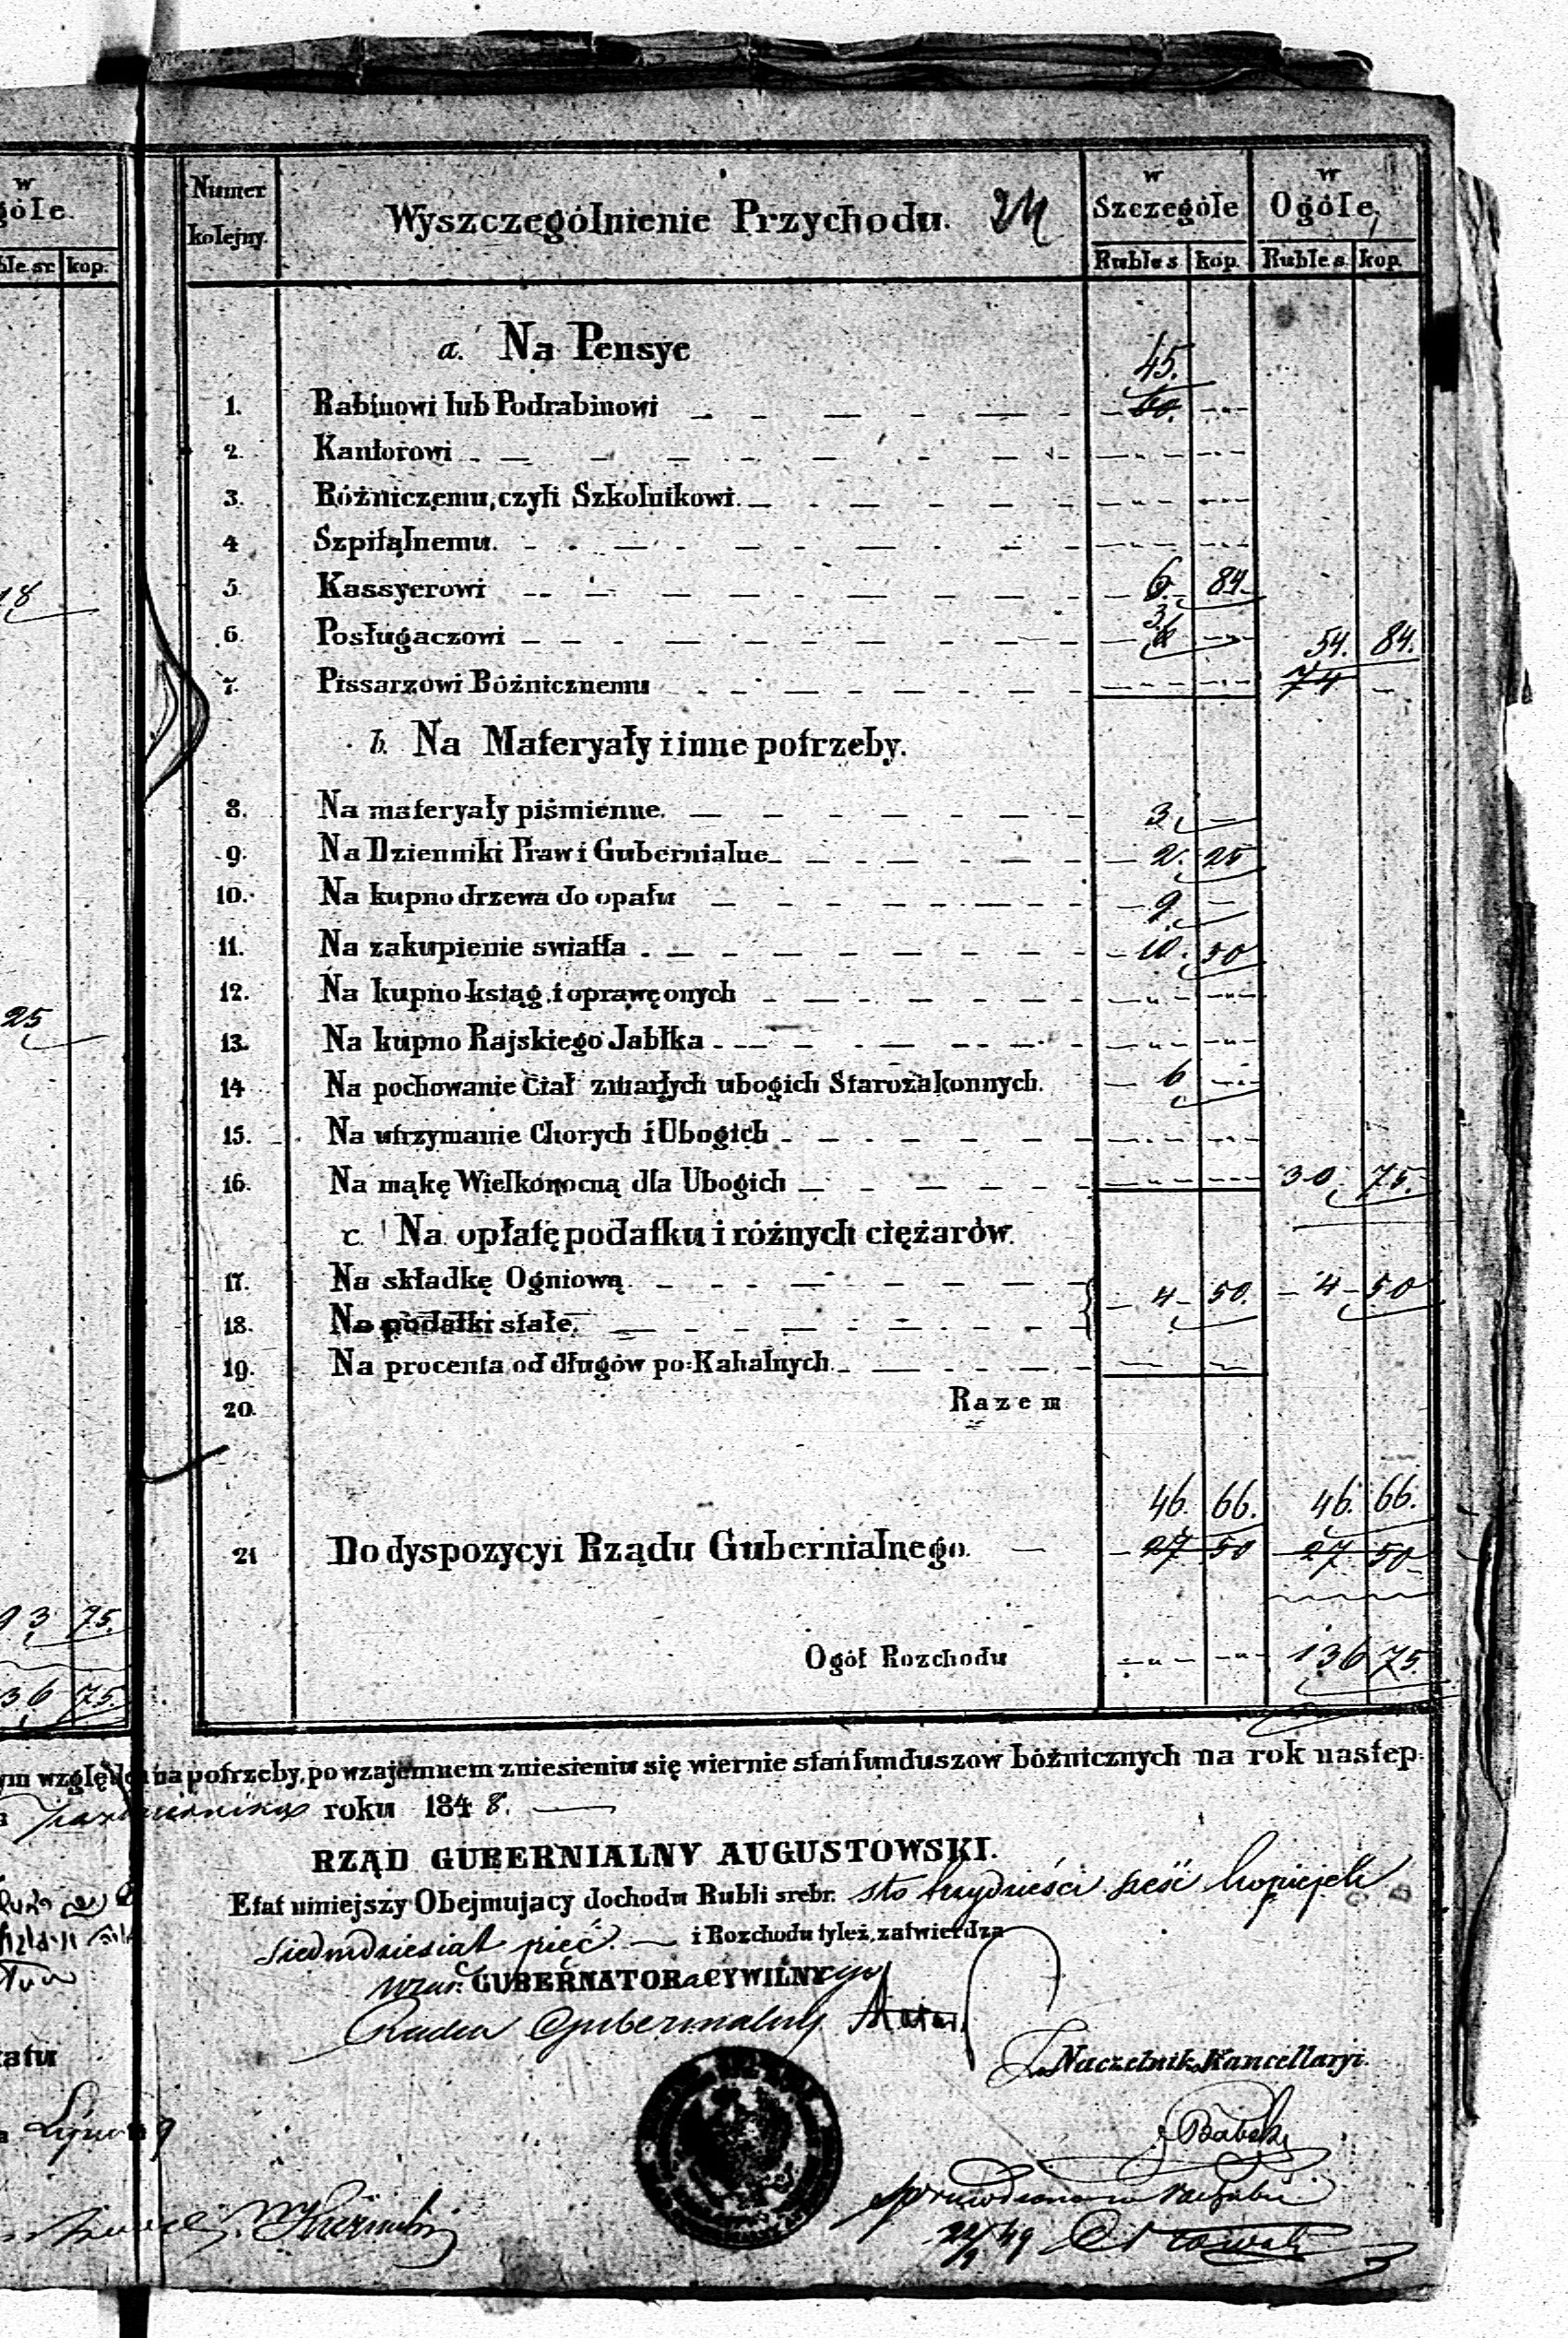 w
w
w
góle.
Numer
kolejny.
Wyszczególnienie Przychodu.
24
Szczególe
Ogóle,
ble sr.
kop.
Ruble s
kop.
Ruble s.
kop
a. Na Pensye
45.
1. Rabinowi lub Podrabinowi
60.
2. Kantorowi
3. Bóżniczemu, czyli Szkolnikowi.
4 Szpitalnemu.
5. Kassyerowi 6. 84
18
3.
6. Posługaczowi 54. 84.
7. Pissarzowi Bóżnicznemu 74
b. Na Materyały i inne potrzeby.
8. Na materyały piśmienne. 3.
9. Na Dzienniki Praw i Gubernialne 2. 25
10. Na kupno drzewa do opału 9.
11. Na zakupienie swiatła 10. 50
12. Na kupno ksiąg i oprawę onych
25
13. Na kupno Rajskiego Jabłka
14 Na pochowanie Ciał zmarłych ubogich Starozakonnych. 6
15. Na utrzymanie Chorych i Ubogich
16. Na mąkę Wielkonocną dla Ubogich 30. 75.
c. Na opłatę podatku i różnych ciężarów.
17. Na składkę Ogniową
4 50. 4 50
18. Na podatki stałe.
19. Na procenta od długów po-Kahalnych
20. Razem
46. 66. 46. 66.
21 Do dyspozycyi Rządu Gubernialnego. 27 50 27 50
93 75.
Ogół Rozchodu 136 75.
36 75.
ym względem na potrzeby, po wzajemnem zniesieniu się wiernie stan funduszow bóżnicznych na rok nastep.
Października roku 1848.
RZĄD GUBERNIALNY AUGUSTOWSKI.
Etat niniejszy Obejmujący dochodu Rubli srebr. sto trzydzieści sześć kopiejek
siedmdziesiąt pięć. i Rozchodu tyleż, zatwierdza
GUBERNATOR CYWILNY
Radca Gubernialny
tatu
Naczelnik Kancellaryi.
Sprawdzono w